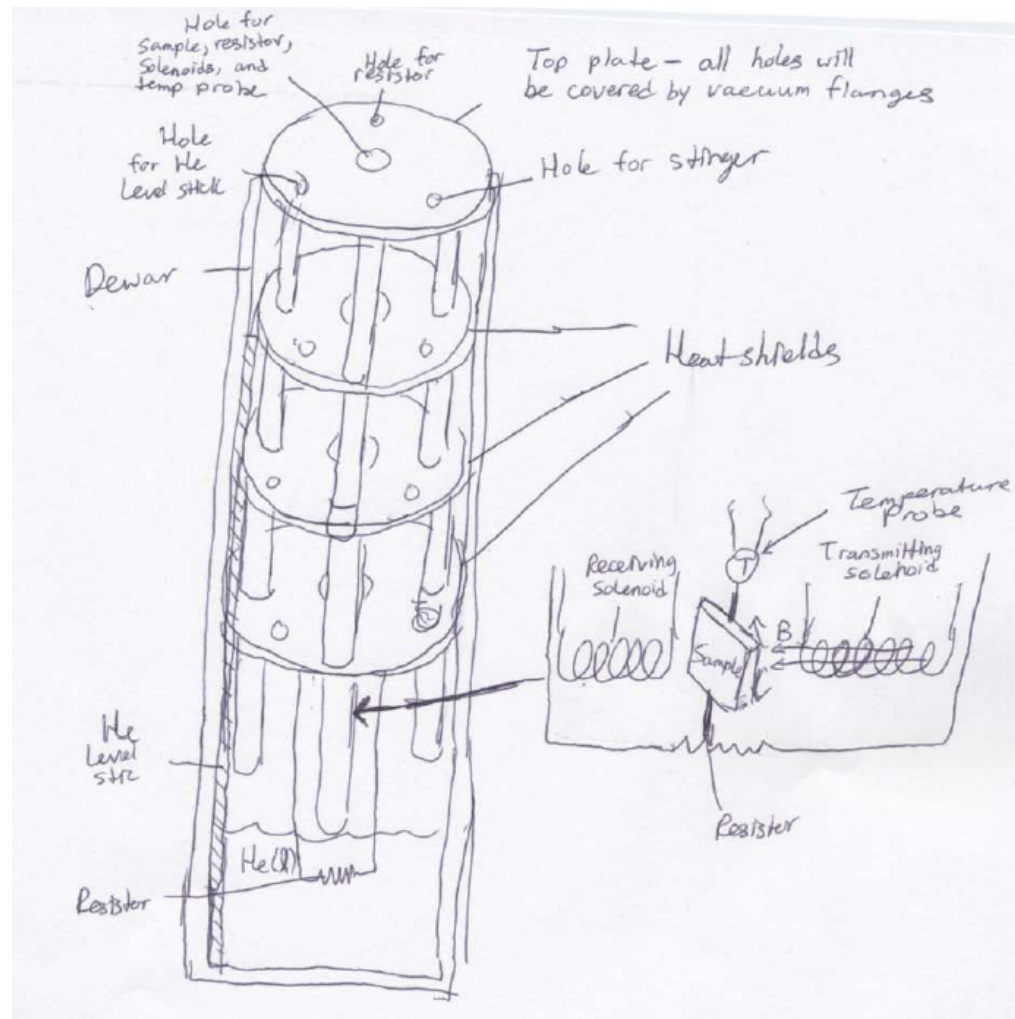 Hole for
Sample, resistor,
Solenoids, and
temp probe
Hole for
resistor
Top plate – all holes will
be covered by vacuum flanges
Hole
for He
Level stick
Hole for stinger
Dewar
Heat shields
Temperature
probe
Receiving
solenoid
Transmitting
solenoid
T
B
Sample
He
Level
stic
Resistor
He(l)
Resistor